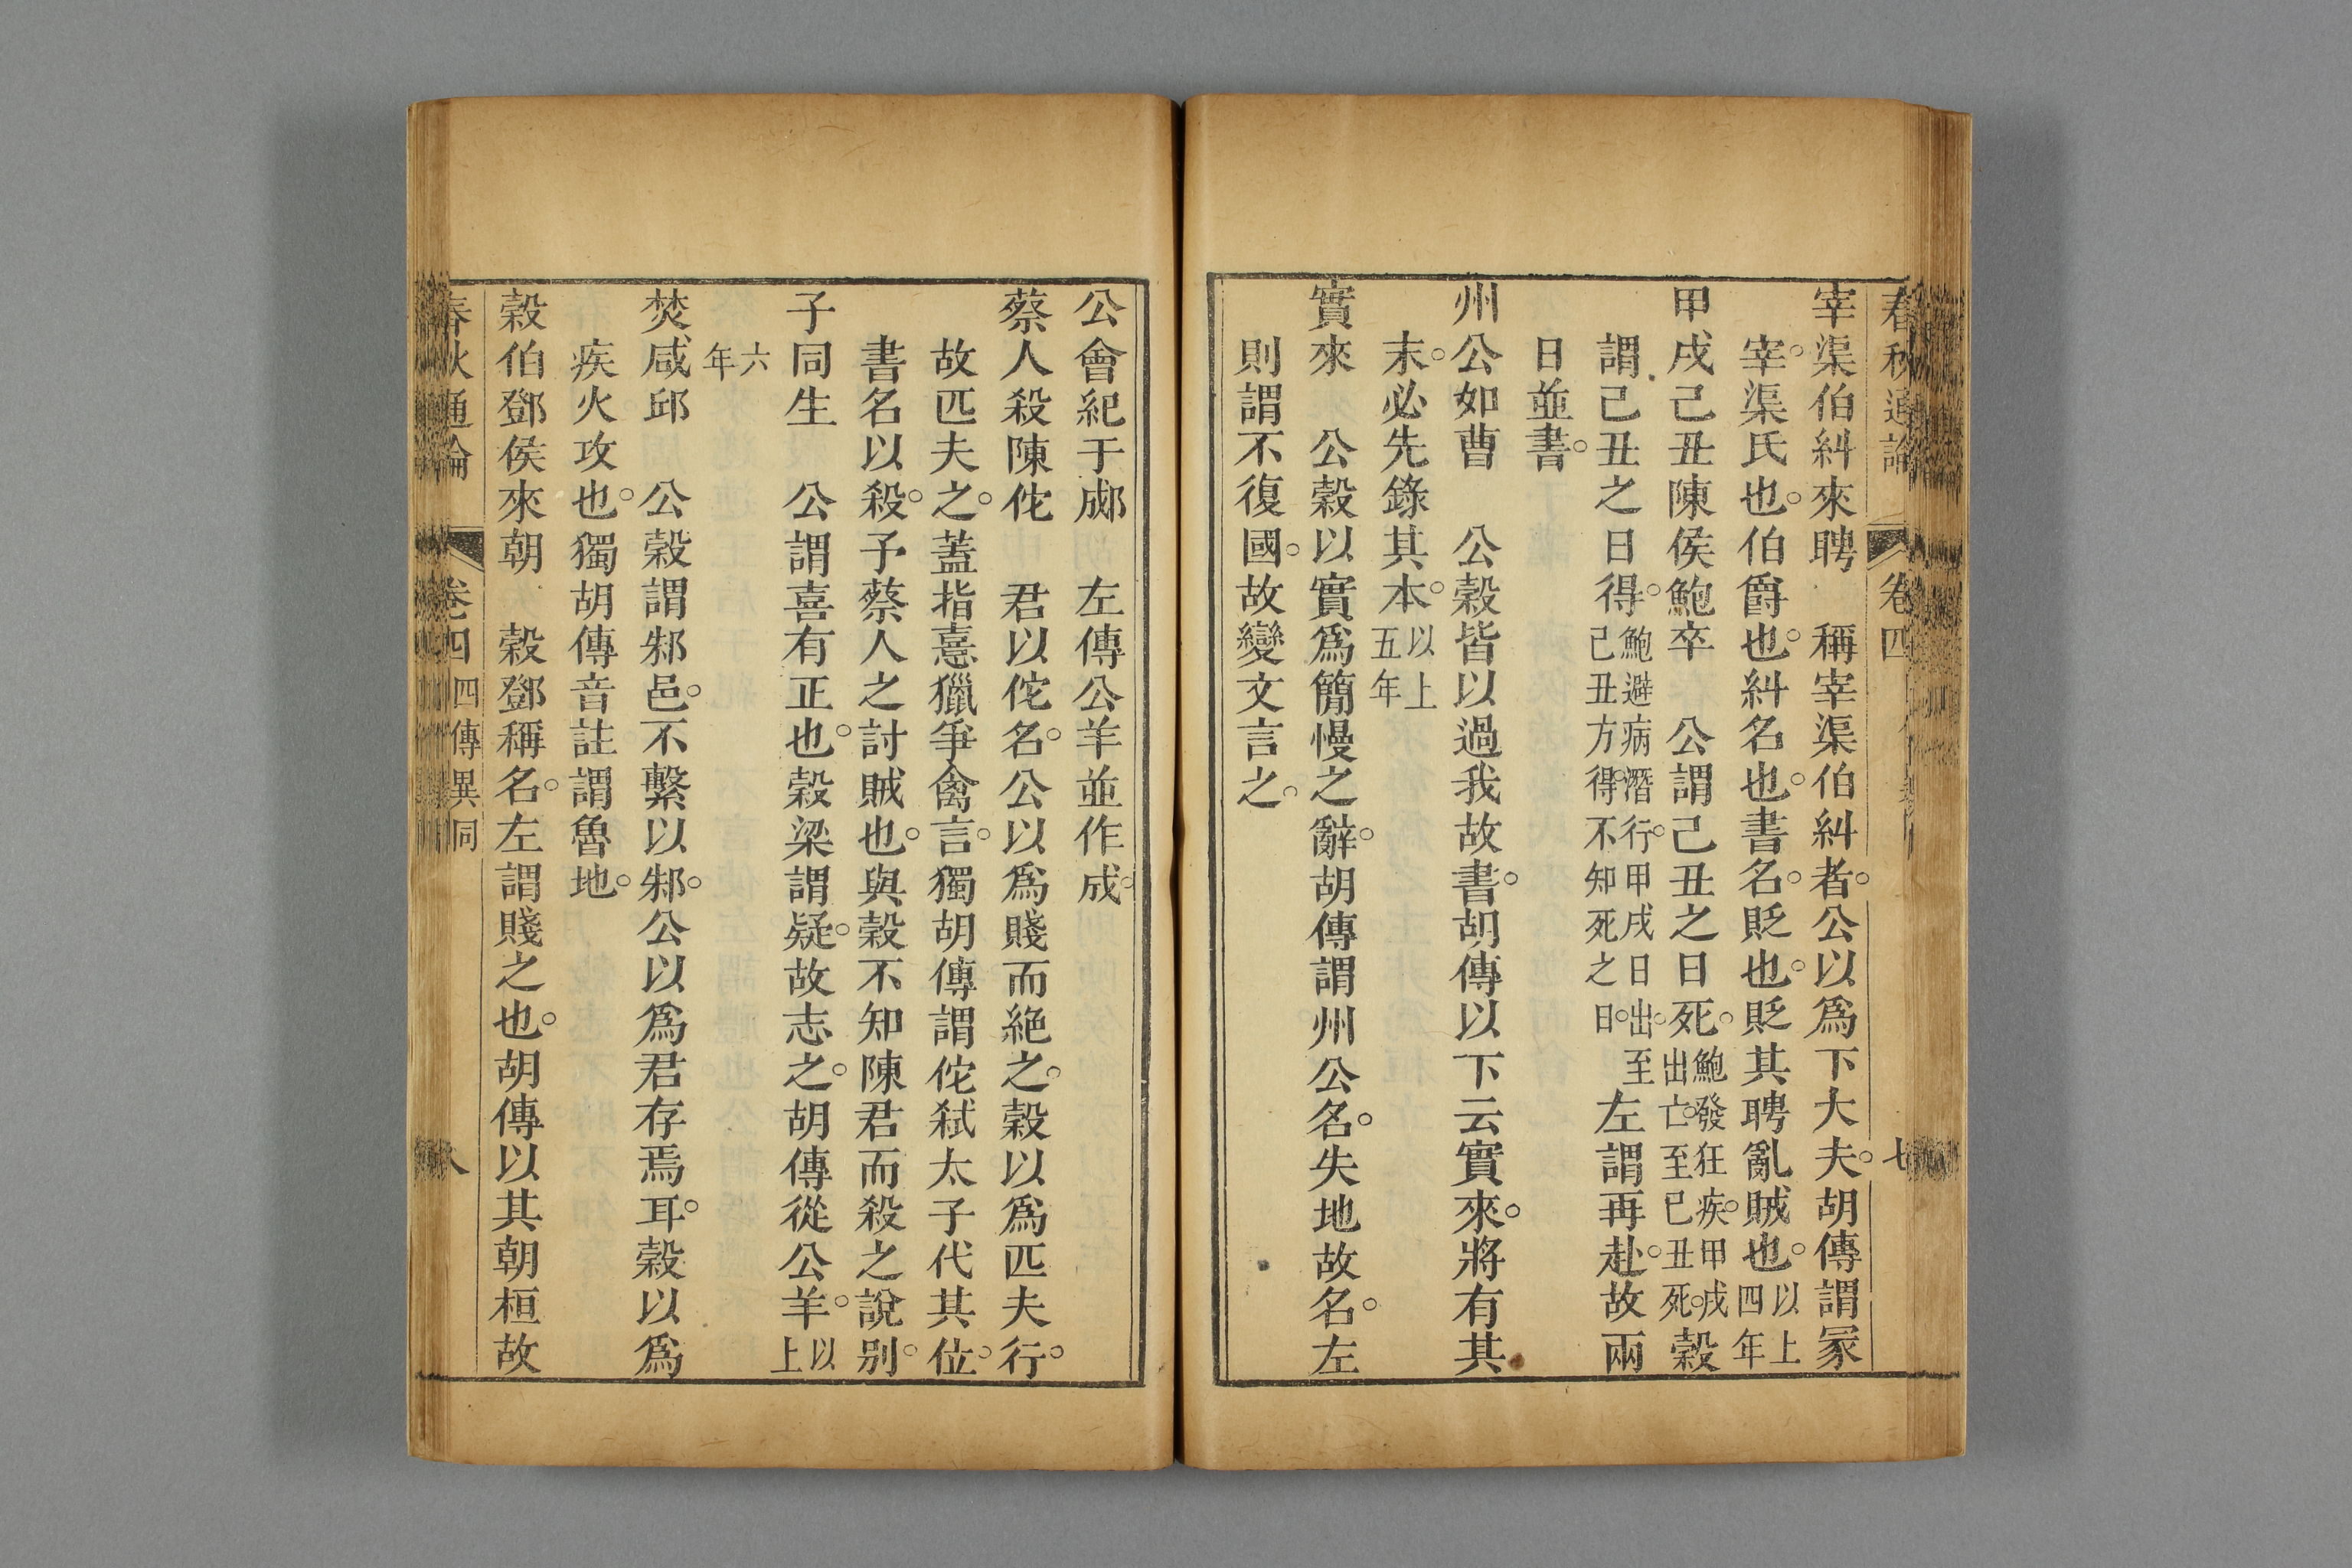 春秋通論 卷四 七
宰渠伯糾來聘 稱宰渠伯糾者公以爲下大夫胡傳謂冢
宰渠氏也伯爵也糾名也書名貶也貶其聘亂賊也以上四年
甲戌己丑陳侯鮑卒 公謂己丑之日死鮑發狂疾甲戌出亡至已丑死穀
謂己丑之日得鮑避病潛行甲戌日出至己丑方得不知死之日左謂再赴故兩
日並書
州公如曹 公穀皆以過我故書胡傳以下云實來將有其
末必先錄其本以上五年
實來 公穀以實爲簡慢之辭胡傳謂州公名失地故名左
則謂不復國故變文言之
公會紀于郕 左傳公羊並作成
蔡人殺陳佗 君以佗名公以爲賤而絕之穀以爲匹夫行
故匹夫之蓋指憙獵爭禽言獨胡傳謂佗弑太子代其位
書名以殺予蔡人之討賊也與穀不知陳君而殺之說别
子同生 公謂喜有正也穀梁謂疑故志之胡傳從公羊以上
六年
焚咸邱 公穀謂邾邑不繫以邾公以爲君存焉耳穀以爲
疾火攻也獨胡傳音註謂魯地
穀伯鄧侯來朝 穀鄧稱名左謂賤之也胡傳以其朝桓故
春秋通論 卷四 四傳異同 八